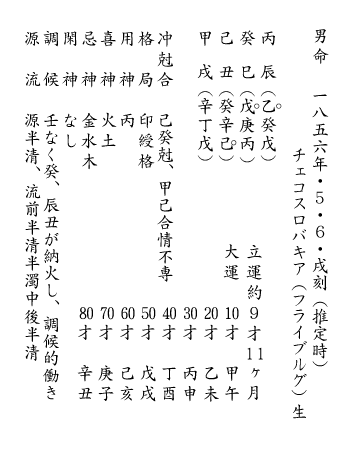 男命 一八五六年・5・6・戌刻(推定時)
チェコスロバキア(フライブルグ)生
丙 辰(乙癸戊)
癸 巳(戊庚丙)
己 丑(癸辛己)
甲 戌(辛丁戊)
立運約9才11ヶ月
大運 10才 甲午
20才 乙未
30才 丙申
40才 丁酉
50才 戊戌
60才 己亥
70才 庚子
80才 辛丑
冲尅合 己癸尅、甲己合情不専
格局 印綬格
用神 丙
喜神 火土
忌神 金水木
閑神 なし
調候 壬なく癸、辰丑が納火し、調候的働き
源流 源半清、流前半清半濁中後半清